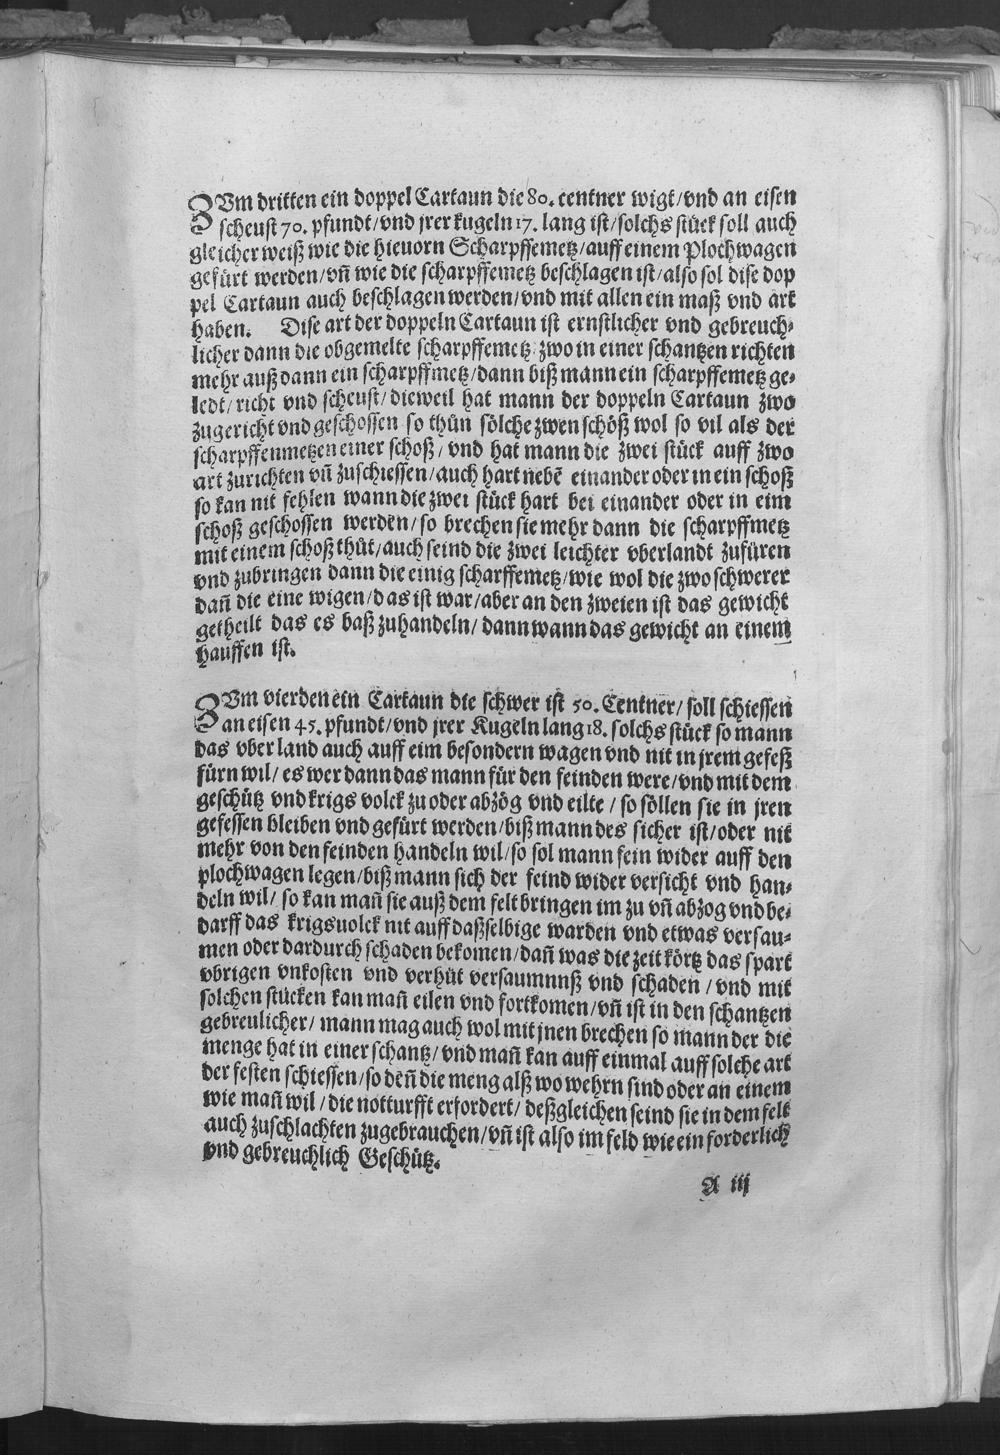 ZUm dritten ein doppel Cartaun die 80. centner wigt/vnd an eisen
scheust 70. pfundt/vnd jrer kugeln 17. lang ist/solchs stück soll auch
gleicher weiß wie die hieuorn Scharpffemetz/auff einem Plochwagen
gefürt werden/vn̄ wie die scharpffemetz beschlagen ist/also sol dise dop
pel Cartaun auch beschlagen werden/vnd mit allen ein maß vnd art
haben. Dise art der doppeln Cartaun ist ernstlicher vnd gebreuch⸗
licher dann die obgemelte scharpffemetz zwo in einer schantzen richten
mehr auß dann ein scharpffmetz/dann biß mann ein scharpffemetz ge⸗
ledt/richt vnd scheust/dieweil hat mann der doppeln Cartaun zwo
zugericht vnd geschossen so thůn sölche zwen schöß wol so vil als der
scharpffenmetzen einer schoß/vnd hat mann die zwei stück auff zwo
art zurichten vn̄ zuschiessen/auch hart nebē einander oder in ein schoß
so kan nit fehlen wann die zwei stück hart bei einander oder in eim
schoß geschossen werden/so brechen sie mehr dann die scharpffmetz
mit einem schoß thůt/auch seind die zwei leichter vberlandt zufüren
vnd zubringen dann die einig scharffemetz/wie wol die zwo schwerer
dan̄ die eine wigen/das ist war/aber an den zweien ist das gewicht
getheilt das es baß zuhandeln/dann wann das gewicht an einem
hauffen ist.
ZUm vierden ein Cartaun die schwer ist 50. Centner/soll schiessen
an eisen 45. pfundt/vnd jrer Kugeln lang 18. solchs stück so mann
das vber land auch auff eim besondern wagen vnd nit in jrem gefeß
fürn wil/es wer dann das mann für den feinden were/vnd mit dem
geschütz vnd krigs volck zu oder abzög vnd eilte/so söllen sie in jren
gefessen bleiben vnd gefürt werden/biß mann des sicher ist/oder nit
mehr von den feinden handeln wil/so sol mann sein wider auff den
plochwagen legen/biß mann sich der feind wider versicht vnd han⸗
deln wil/so kan man̄ sie auß dem felt bringen im zu vn̄ abzog vnd be⸗
darff das krigsuolck nit auff dasselbige warden vnd etwas versau⸗
men oder dardurch schaden bekomen/dan̄ was die zeit körtz das spart
vbrigen vnkosten vnd verhüt versaumnuß vnd schaden/vnd mit
solchen stücken kan man̄ eilen vnd fortkomen/vn̄ ist in den schantzen
gebreulicher/mann mag auch wol mit jnen brechen so mann der die
menge hat in einer schantz/vnd man̄ kan auff einmal auff solche art
der festen schiessen/so den̄ die meng alß wo wehrn sind oder an einem
wie man̄ wil/die notturfft erfordert/deßgleichen seind sie in dem felt
auch zuschlachten zugebrauchen/vn̄ ist also im feld wie ein forderlich
vnd gebreuchlich Geschütz.
A iij